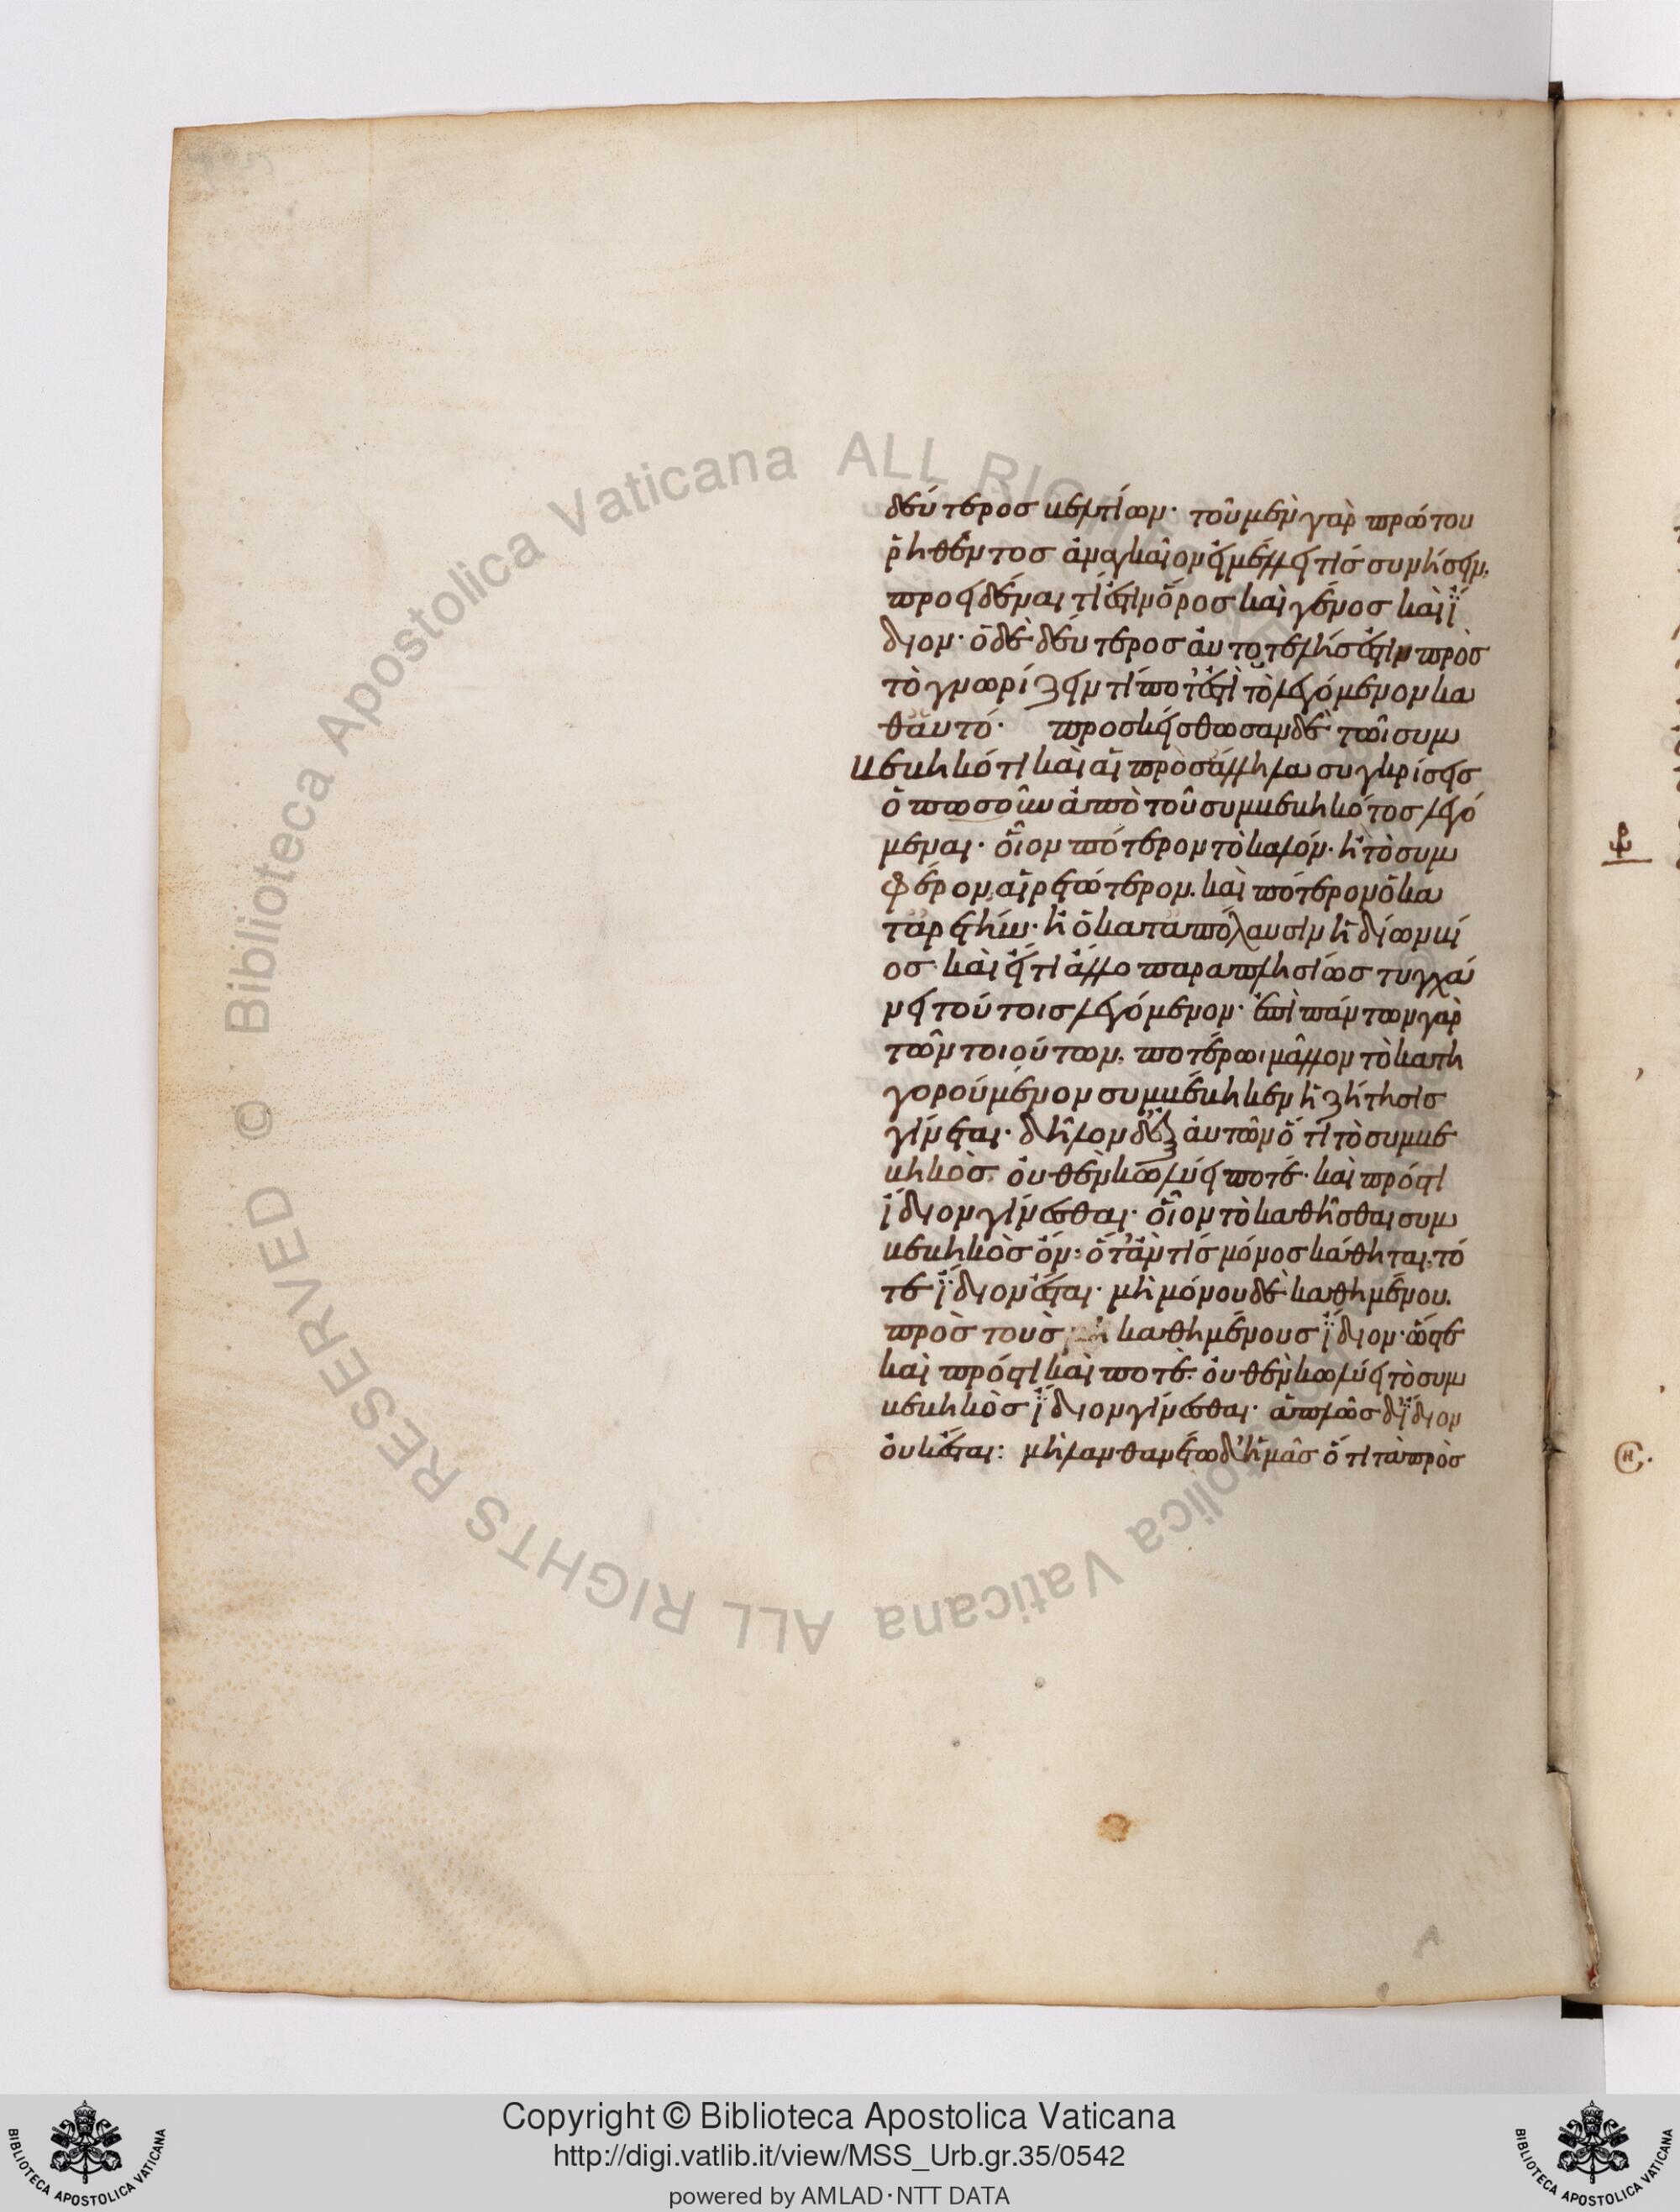 δεύτεροσ βελτίων· τοῦ μὲν γὰρ πρώτου
ῥηθέντοσ ἀναγκαῖον εἰ μέλλει τίσ συνήσειν,
προειδέναι τί ἐστιν ὅροσ καὶ γένοσ καὶ ἴ
διον· ὁ δὲ δεύτεροσ αὐτοτελήσ ἐστιν πρὸσ
τὸ γνωρίζειν τί ποτ' ἐστὶ τὸ λεγόμενον κα
θ' αὑτό· προσκείσθωσαν δὲ τῶι συμ
βεβηκότι καὶ αἱ πρὸσ ἄλληλα συγκρίσεισ
ὁπωσοῦν ἀπὸ τοῦ συμβεβηκότοσ λεγό
μεναι· οἷον πότερον τὸ καλόν· ἢ τὸ συμ
φέρον αἱρετώτερον. καὶ πότερον ὁ κα
τ' ἀρετὴν· ἢ ὁ κατ' ἀπόλαυσιν ἡδίων βί
οσ· καὶ εἴ τι ἄλλο παραπλησίωσ τυγχά
νει τούτοισ λεγόμενον· ἐπὶ πάντων γὰρ
τῶν τοιούτων, ποτέρωι μᾶλλον τὸ κατη
γορούμενον συμβέβηκεν ἡ ζήτησισ
γίνεται· δῆλον δ' ἐξ αὐτῶν ὅτι τὸ συμβε
βηκὸσ, οὐθὲν κωλύει ποτέ· καὶ πρόσ τι
ἴδιον γίνεσθαι· οἷον τὸ καθῆσθαι συμ
βεβηκὸσ ὄν· ὅτ' ἄν τίσ μόνοσ κάθηται, τό
τε ἴδιον ἔσται· μὴ μόνου δὲ καθημένου.
πρὸσ τοὺσ μὴ καθημένουσ ἴδιον· ὥστε
καὶ πρόσ τι καὶ ποτὲ· οὐθὲν κωλύει τὸ συμ
βεβηκὸσ ἴδιον γίνεσθαι· ἁπλῶσ δ' ἴδιον
οὐκ ἔσται: μὴ λανθανέτω δ' ἡμᾶσ ὅτι τὰ πρὸσ
Copyright © Biblioteca Apostolica Vaticana
http://digi.vatlib.it/view/MSS_Urb.gr.35/0542
powered by AMLAD·NTT DATA
BIBLIOTECA APOSTOLICA VATICANA
BIBLIOTECA APOSTOLICA VATICANA
© Biblioteca Apostolica Vaticana ALL RIGHTS RESERVED